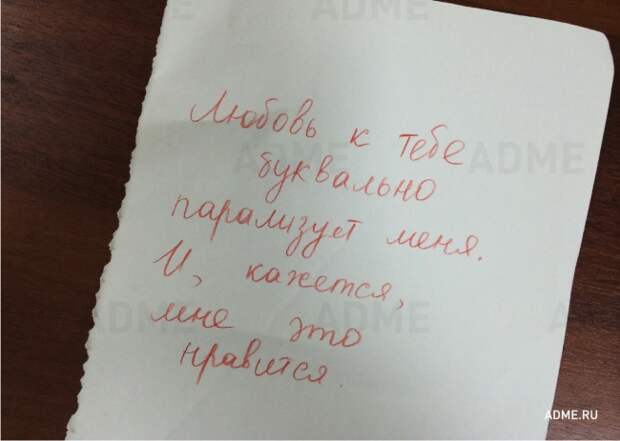 ADME
Любовь к тебе
буквально
парализует меня.
И, кажется,
мне это
нравится.
ADME
ADME
ADME
ADME
ADME.RU